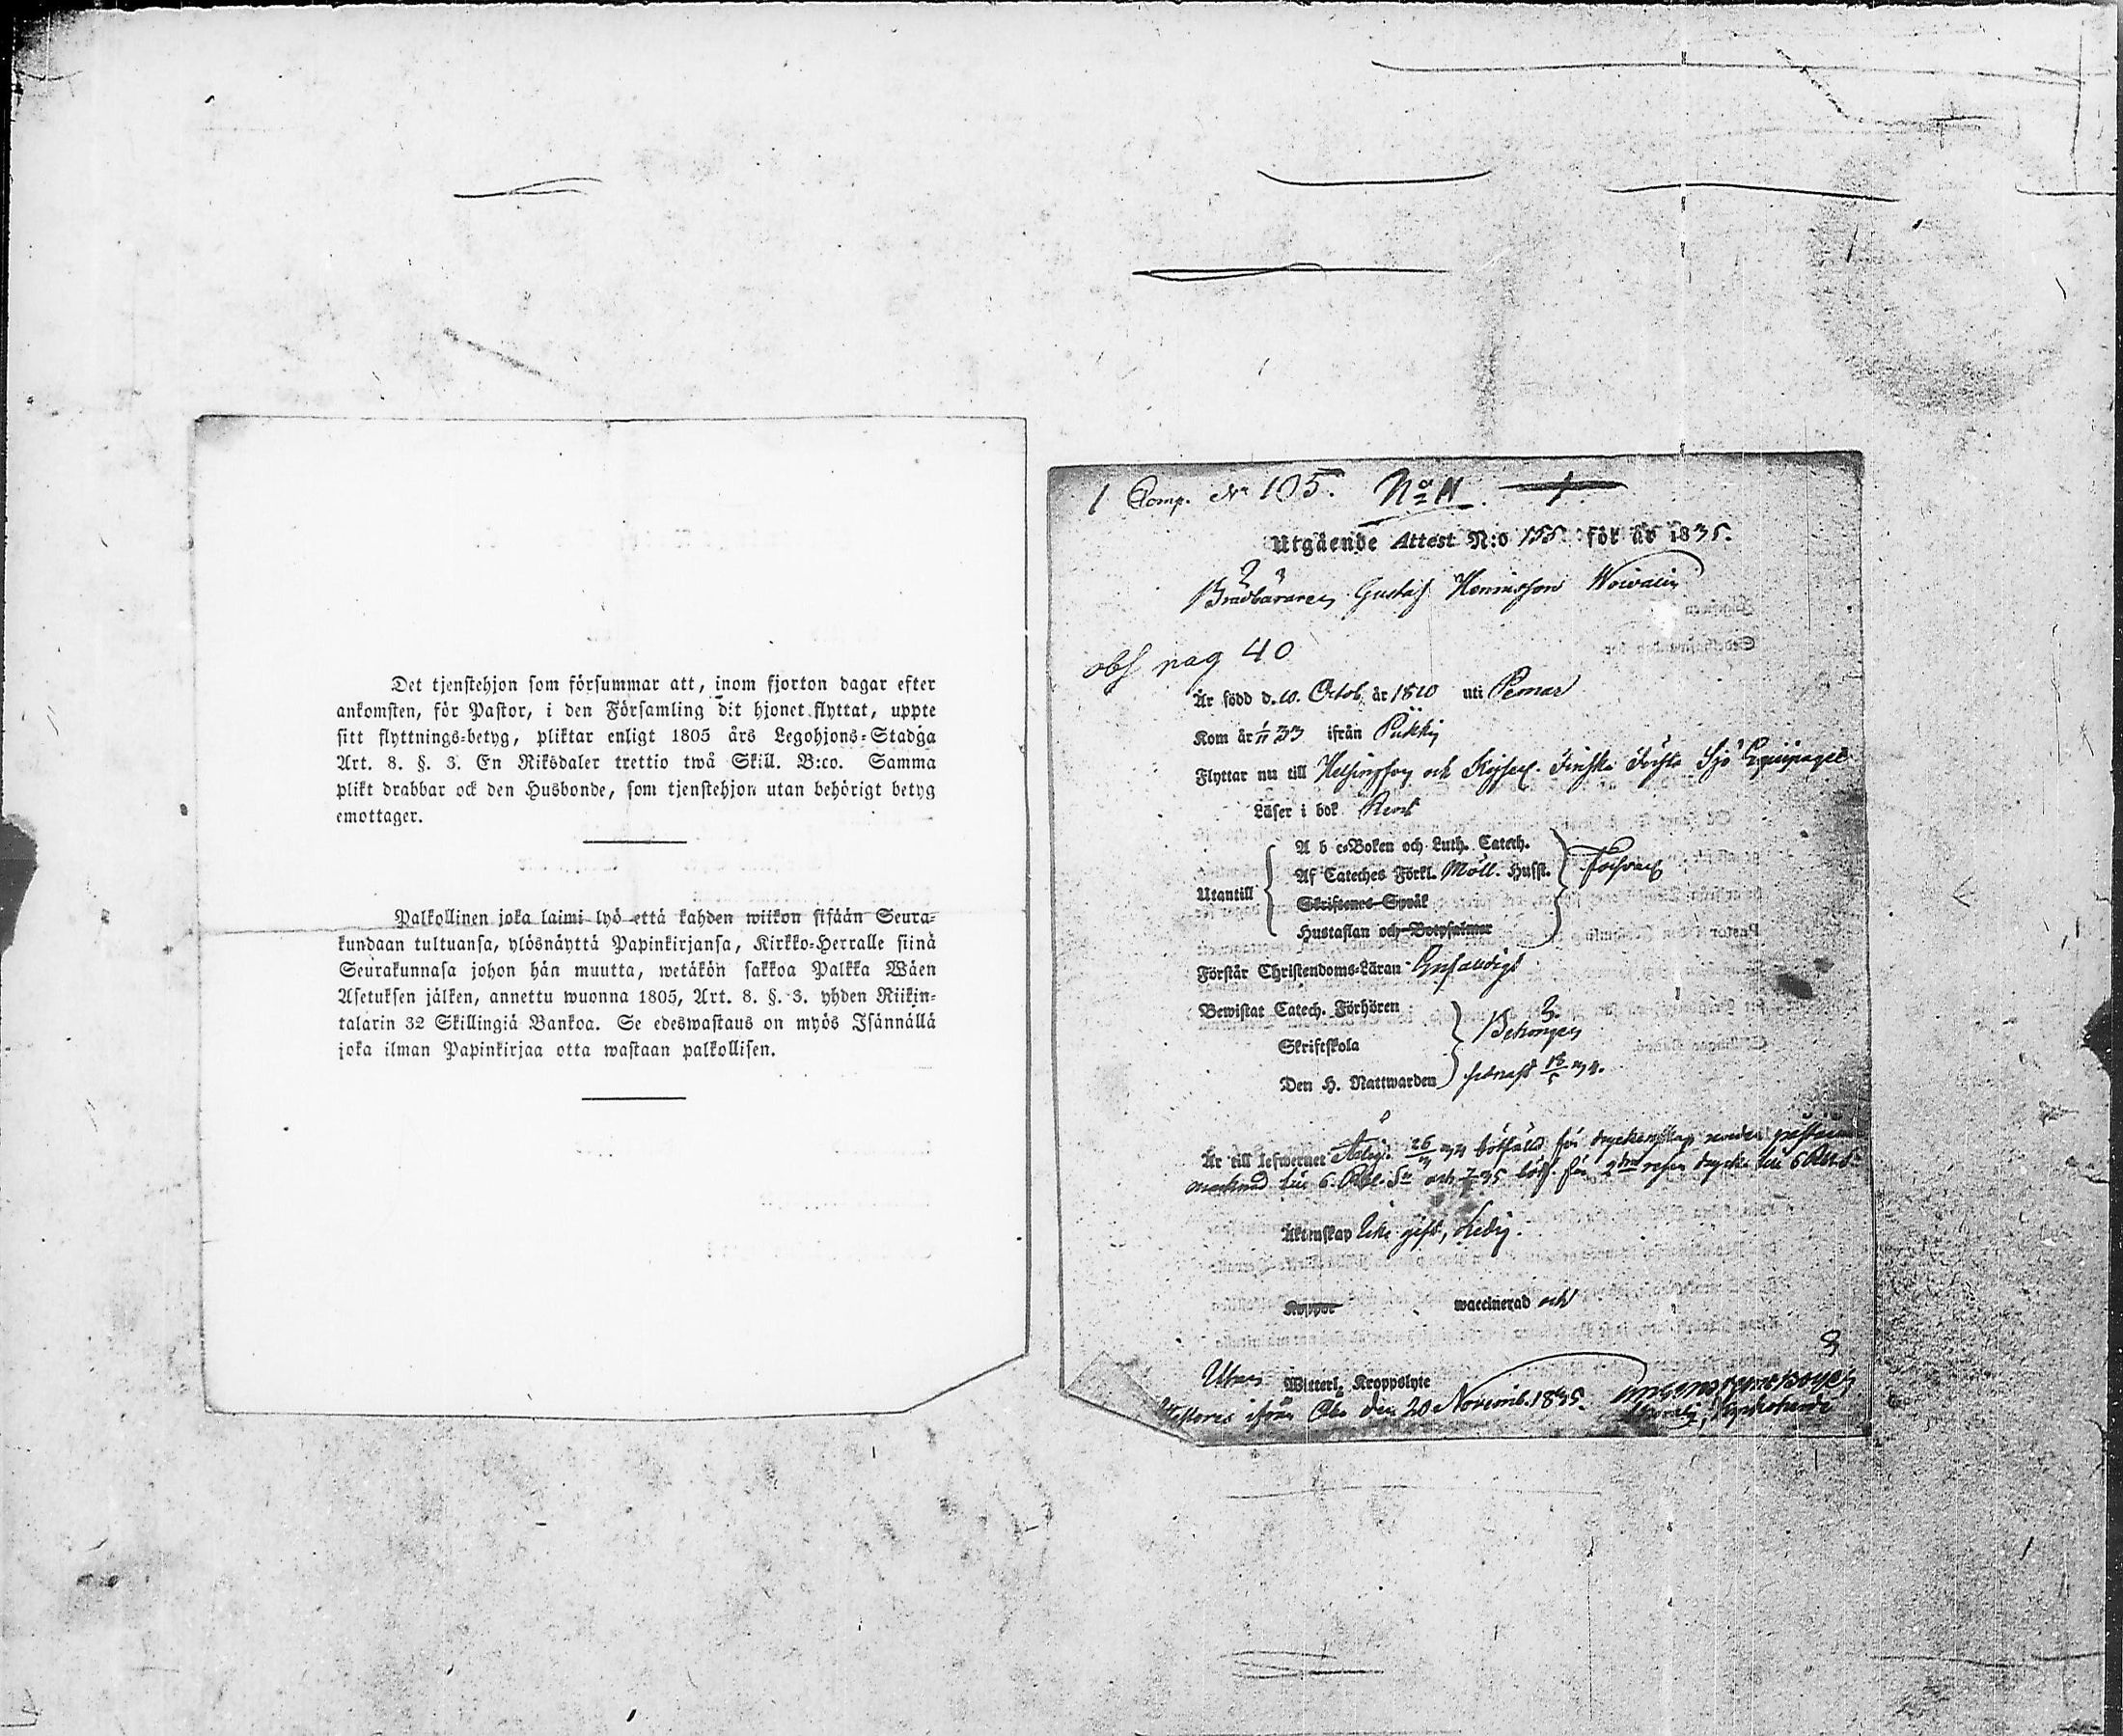 Det tjenstehjon som försummar att, inom fjorton dagar efter
ankomsten, för Pastor, i den Församling dit hjonet flyttat, uppte
sitt flyttnings-betyg, pliktar enligt 1805 års Legohjons-Stadga
Art. 8. §. 3. En Riksdaler trettio twå Skill. B:co. Samma
plikt drabbar ock den Husbonde, som tjenstehjon utan behörigt betyg
emottager.
Palkollinen joka laimi lyö että kahden wiikon sisään Seura-
kundaan tultuansa, ylösnäyttä Papinkirjansa, Kirkko-Herralle siinä
Seurakunnasa johon hän muutta, wetäkön sakkoa Palkka Wäen
Asetuksen jälken, annettu wuonna 1805, Art. 8. §. 3. yhden Riikin-
talarin 32 Skillingiä Bankoa. Se edeswastaus on myös Isännällä
joka ilman Papinkirjaa otta wastaan palkollisen.
1 Comp. No 105.
Utgående Attest N:o för år 1835.
Gustaf
obs pag 40
Är född d. 10. Octob. år 1810 uti Pemar
Kom år 1/11 33 ifrån Pikkis
Flyttar nu till Helsingfors och Kejserl. Finska Första Sjö Equipaget
Läser i bok Rent
A b c-Boken och Luth. Catech.
Af Cateches Förkl. Möll. Husst.
Utantill
Skriftenes Språk
Försvarl
Hustaflan och Botpsalmer
Förstår Christendoms-Läran
Bewistat Catech. Förhören
Skriftskola
Den H. Nattwarden senast
Är till lefwernet bötfäld för dryckenskap under
marknad till 6. Rbl. Sr och 35 för 2dra resan
Äktenskap Icke gift, Ledig.
Koppor waccinerad och
Utan Witterl. Kroppslyte
Åbo den 20 Novemb. 1835.